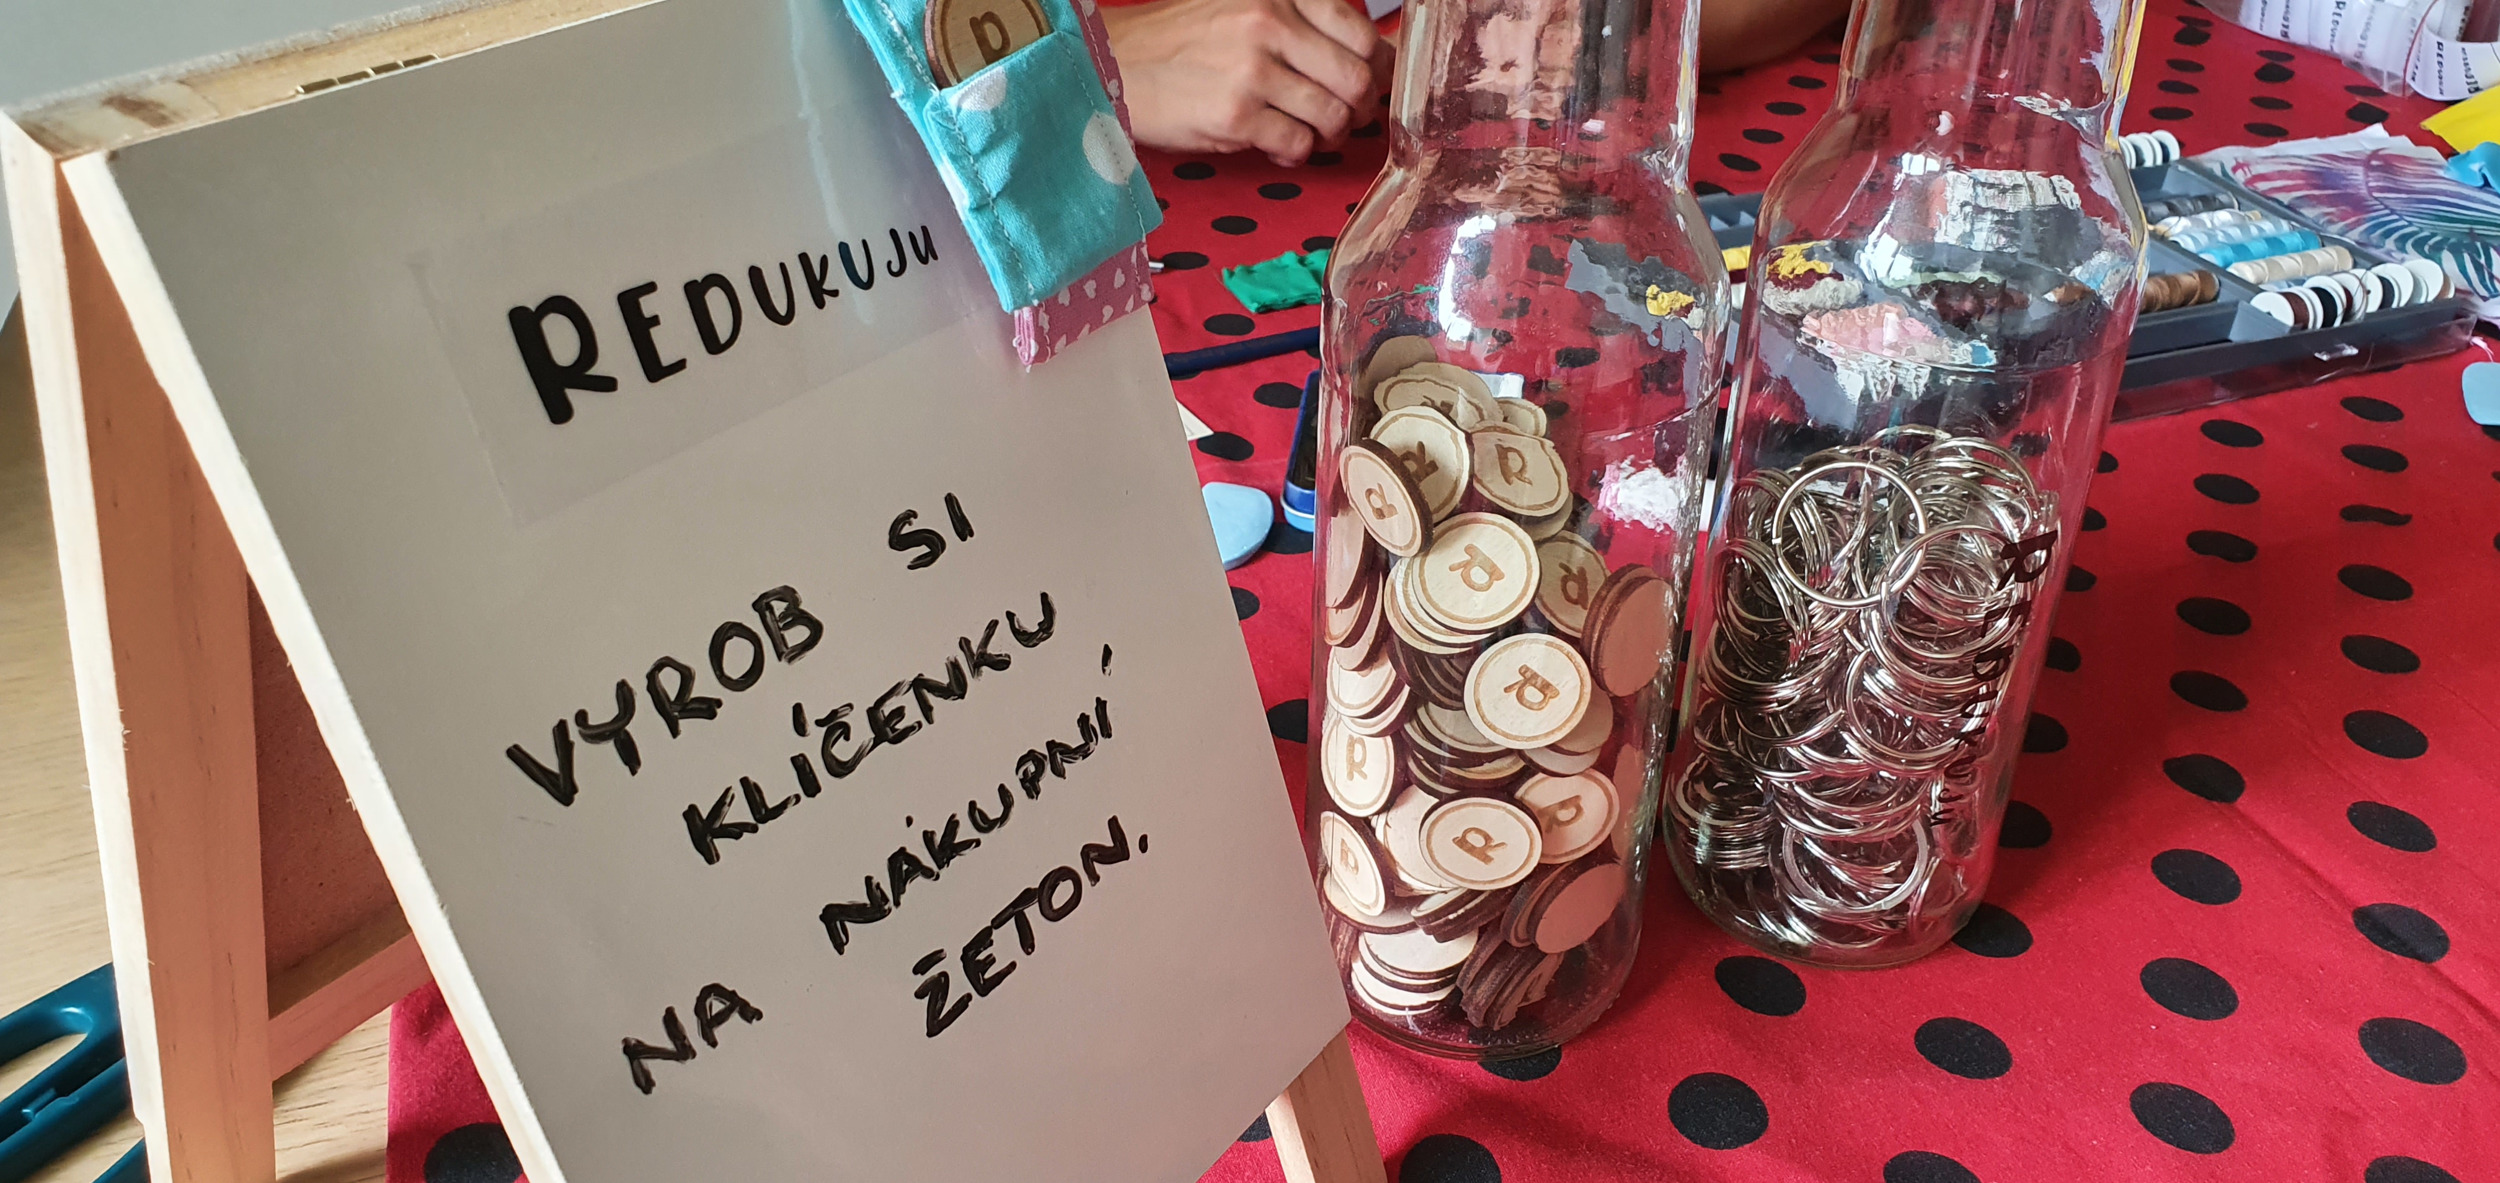 REDUKUJU
VYROB SI
KLÍČENKU
NA NÁKUPNÍ
ŽETON.
R
R
R
R
R
R
R
R
R
R
REDUKUJU